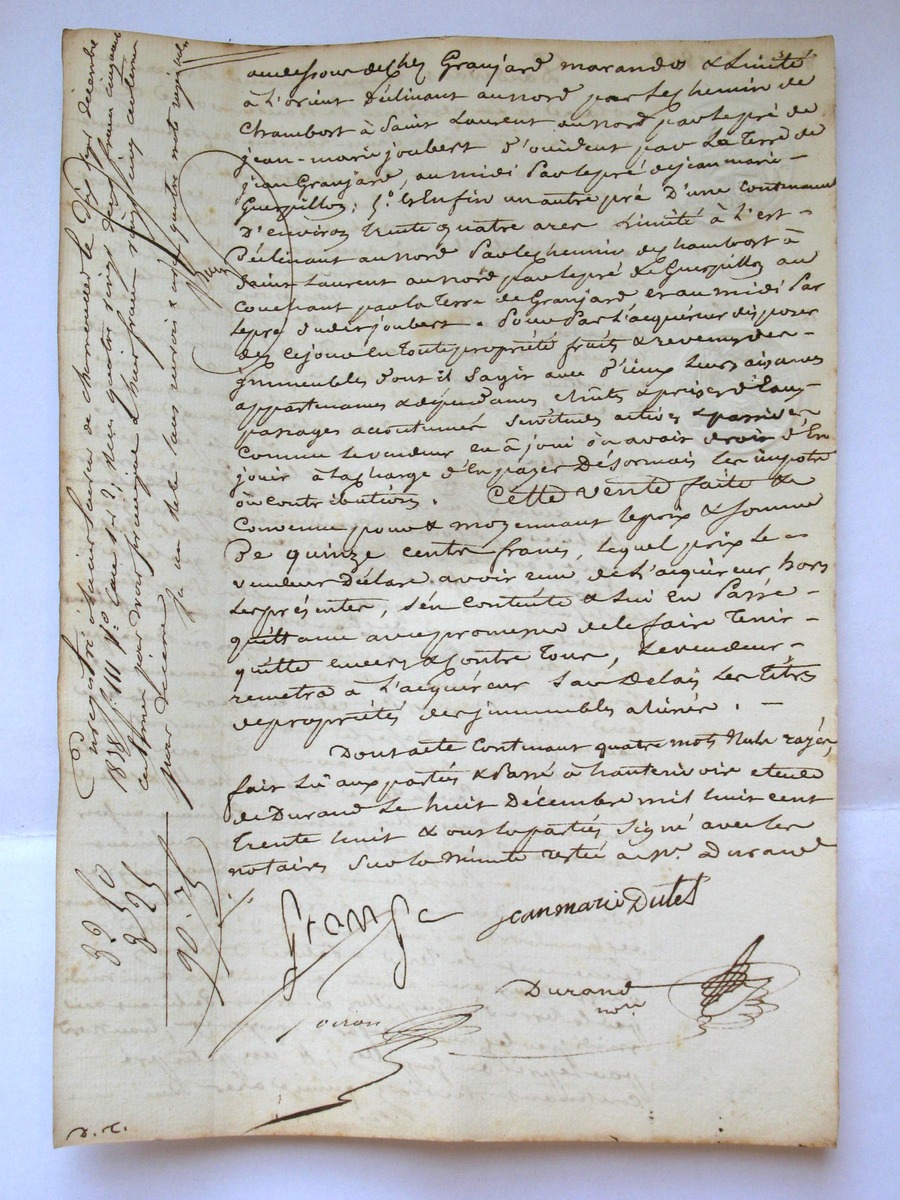 au dessous de chez Granjard marandos & limité
à L'orient Déclinant au nord par le chemin de
Chambort à Saint Laurent au nord par le pré de
jean-marie joubert d'occident par La Terre de
jean Granjard, au midi Par le pré de jean marie -
Guerpillon; 5.o & Enfin un autre pré D'une contenance
D'environ trente quatre ares Limité à l'est -
Déclinant au nord Par le chemin de chambort à
Saint Laurent au nord par le pré de Guerpillon au
Couchant par la Terre de Granjard et au midi Par
le pré dudit joubert. Pour Par L'acquéreur disposer
des ce jour en toute propriété fruits & revenus des
immeubles dont il s'agit avec d'iceux leurs aisances
appartenances & dépendances & prises d'Eaux -
passages accoutumés Servitudes actives & passives
Comme le vendeur en à joui ou avait droit d'En
jouir à la charge d'En payer Désormais les impots
ou contributions. Cette vente faite &
Convenue pour & moyennant le prix & somme
De quinze cents francs, lequel prix le =
vendeur Déclare avoir reçu de L'acquéreur hors
les présentes, s'en contente & lui En Passe -
quittance avec promesse de le faire Tenir -
quitte envers & contre Tous, Le vendeur -
remettra à L'acquéreur Sans Delais les titres
de propriétés des immeubles aliénés. -
Dont acte Contenant quatre mots Nuls rayés,
fait Lû aux parties & Passé à hauterivoire etude
de Durand Le huit Décembre mil huit cent
trente huit & ont les parties Signé avec les
notaires Sur la Minute restée à Me. Durand
Grange
jean marie Dutel
Durand
nore
Coiron
Enregistré à Saint Laurent de chamousset le dix sept décembre
1838 fo. 111 Vo. Case 1 & 2, reçu quatre vingt deux francs cinquante
centimes pour vente francs vingt cinq centimes
pour décime
82 50
8 25
90 75